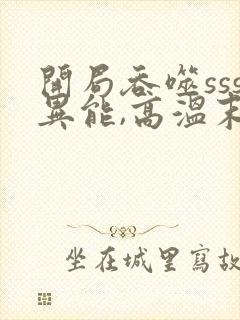 開局吞噬sss
異能,高溫末
坐在城里寫故